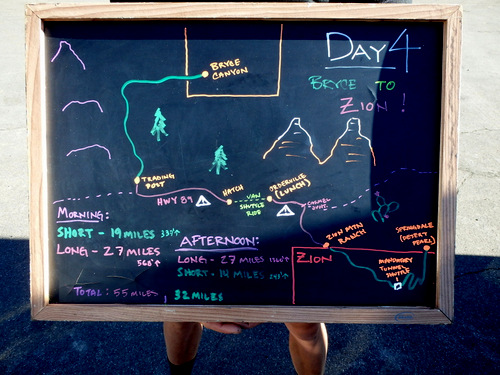 DAY 4
BRYCE TO
ZION!
BRYCE
CANYON
TRADING
POST
HWY 89
HATCH
VAN
SHUTTLE
RIDE
ORDERVILLE
(LUNCH)
CARMEL
ZION MTN
RANCH
SPRINGDALE
(DESERT
PEARL)
ZION
MANDATORY
TUNNEL
SHUTTLE
MORNING:
SHORT - 19 MILES
LONG - 27 MILES
560'↑
AFTERNOON:
LONG - 27 MILES
SHORT - 14 MILES
TOTAL: 55 MILES, 32 MILES